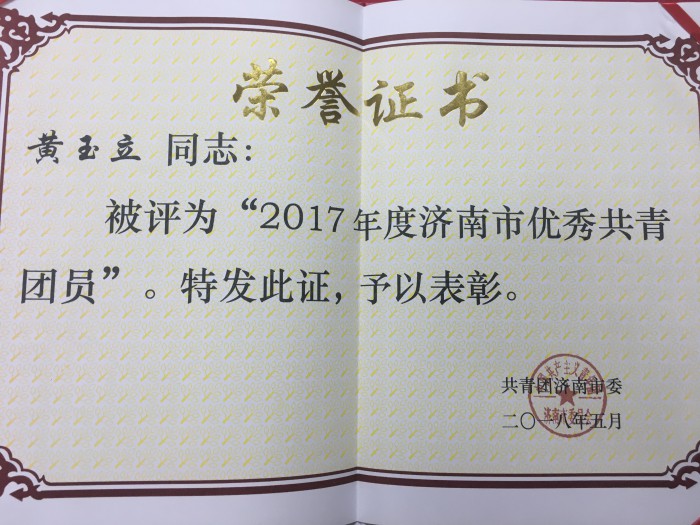 荣誉证书
黄玉立 同志：
被评为“2017年度济南市优秀共青
团员”。特发此证，予以表彰。
共青团济南市委
二〇一八年五月
济南市委员会